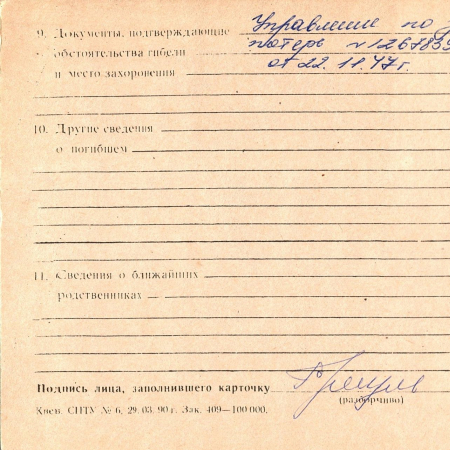 9. Документы, подтверждающие Управление по
обстоятельства гибели потерь №126783
и место захоронения от 22.11.47г.
10. Другие сведения
о погибшем
11. Сведения о ближайших
родственниках
Подпись лица, заполнившего карточку
(разборчиво)
Киев. СПТУ № 6, 29. 03. 90 г. Зак. 409—100 000.